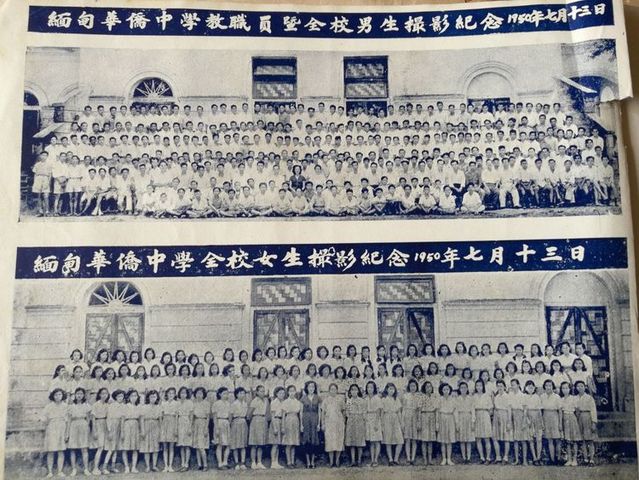 緬甸華僑中學教職員暨全校男生撮影紀念 1950年七月十三日
緬甸華僑中學全校女生撮影紀念 1950年七月十三日